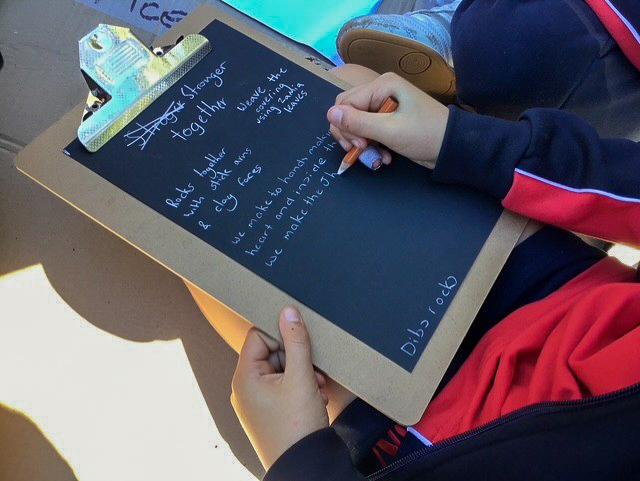 stronger
together
Weave the
covering
using zantia
leaves
Rocks together
with stick arms
& clay faces
we make to hands make
heart and inside th
we make the Jh
Dibs rock
ICE